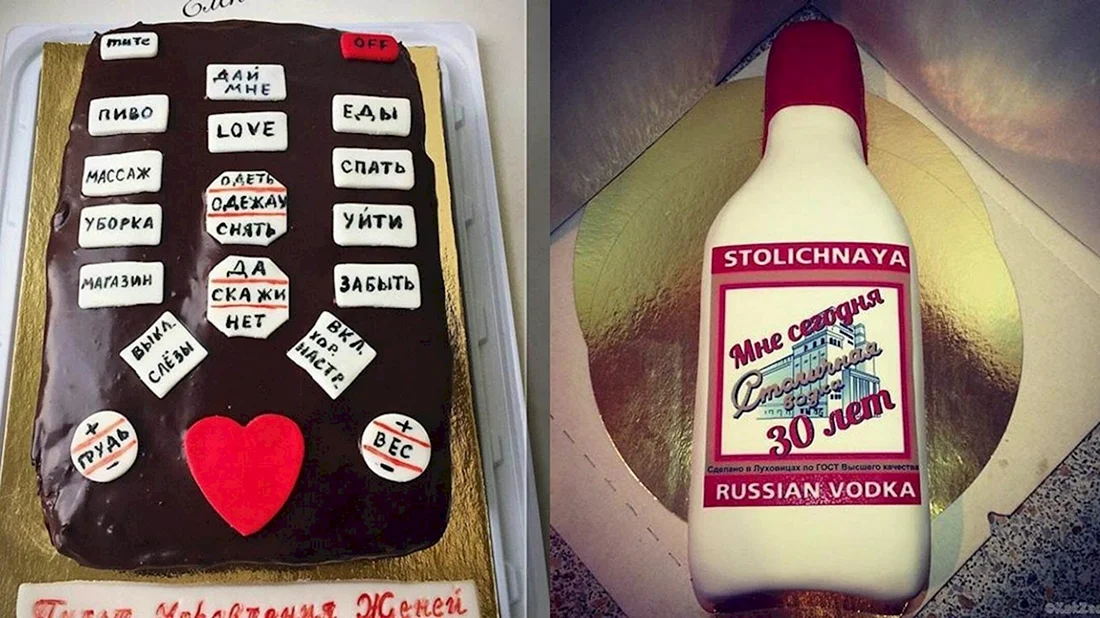 mute
OFF
ДАЙ
МНЕ
ПИВО
LOVE
ЕДЫ
МАССАЖ
ОДЕТЬ
ОДЕЖДУ
СНЯТЬ
СПАТЬ
УБОРКА
УЙТИ
МАГАЗИН
ДА
СКАЖИ
НЕТ
ЗАБЫТЬ
ВЫКЛ.
СЛЁЗЫ
ВКЛ.
ХОР.
НАСТР.
+
ГРУДЬ
-
+
ВЕС
-
Пульт Управления Женей
STOLICHNAYA
Мне сегодня
Столичная
водка
30 лет
Сделано в Луховицах по ГОСТ Высшего качества
RUSSIAN VODKA